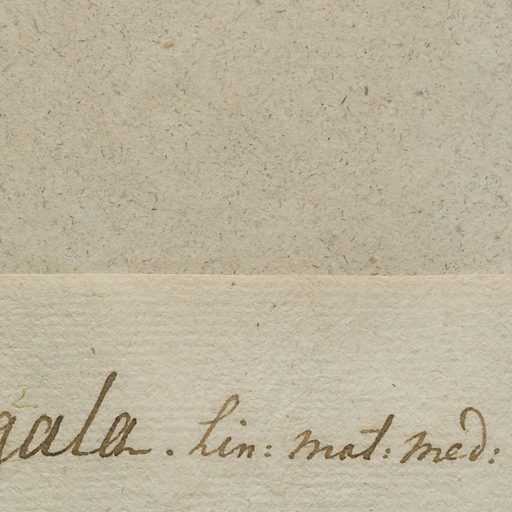 gala. Lin: mat: med: